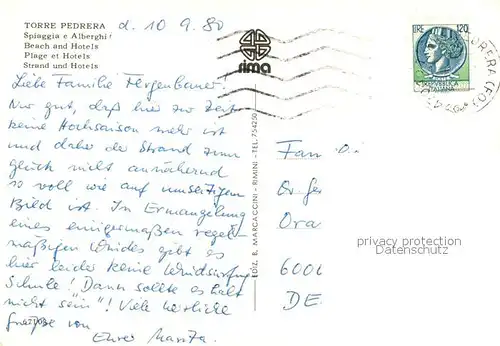 TORRE PEDRERA d. 10.9.80
Spiaggia e Alberghi
Beach and Hotels
Plage et Hotels
Strand und Hotels
rima
LIRE 120
Liebe Familie Fergenbauer!
Nur gut, daß hier zur Zeit
keine Hochsaison mehr ist
und daher der Strand zum
Glück nicht annähernd
so voll wie auf umseitigem
Bild ist. In Ermangelung
eines einigermaßen regel-
mäßigen Windes gibt es
hier leider keine Windsurfing
Schule! Dann sollte es halt
nicht sein"! Viele herzliche
Grüße von
Eurer Marita
EDIZ. E. MARCACCINI - RIMINI - TEL. 754250
Fam
Ora
600
DE
privacy protection
Datenschutz